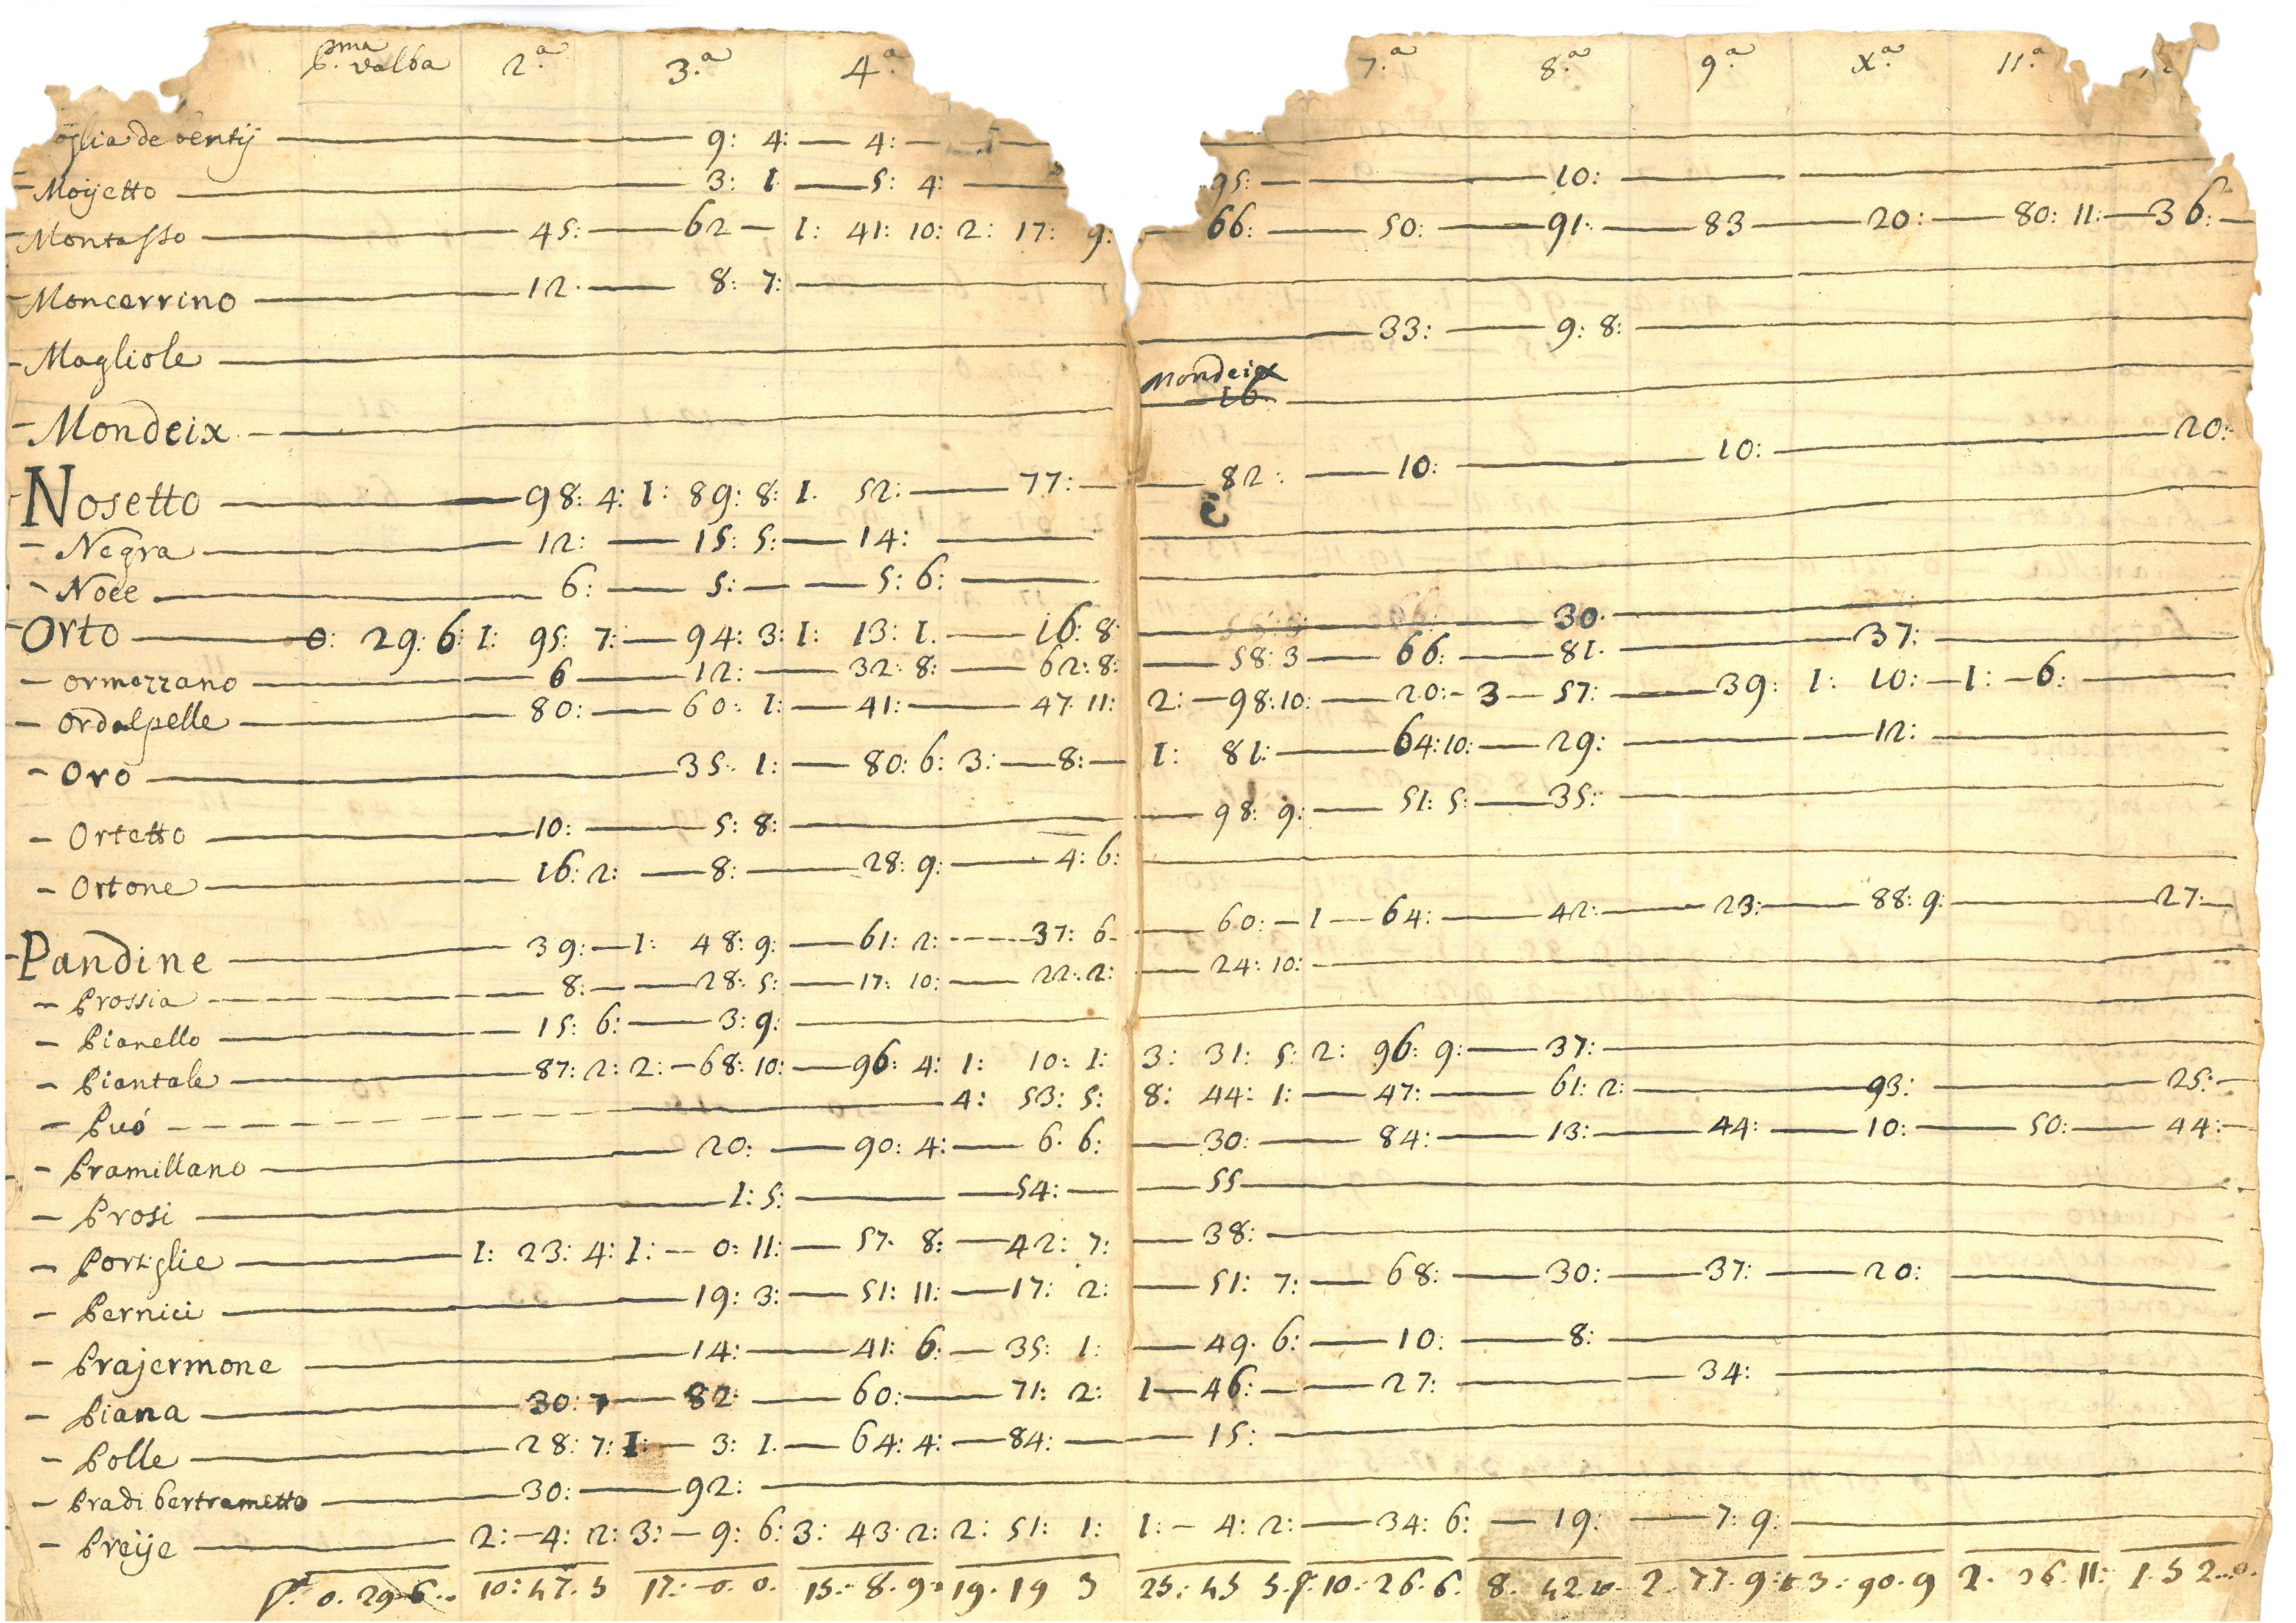 P.ma valba 2.a 3.a 4.a 7.a 8.a 9.a X.a 11.a
oglia de ventij — 9: 4: — 4: —
- Moijetto — 3: 1 — 5: 4: — 95: — 10: —
- Montasso — 45: — 62 — 1: 41: 10: 2: 17: 9: — 66: — 50: — 91: — 83 — 20: — 80: 11: — 36: —
- Moncerrino — 12 — 8: 7: —
- Magliole — 33: — 9: 8: —
Mondeix
16.
- Mondeix —
- Nosetto — 98: 4: 1: 89: 8: 1. 52: — 77: — 82: — 10: — 10: — 20:
- Negra — 12: — 15: 5: — 14: —
- Noce — 6: — 5: — 5: 6: —
- Orto — 0: 29: 6: 1: 95: 7: — 94: 3: 1: 13: 1. — 16: 8: — 30. —
- ormezzano — 6 — 12: — 32: 8: — 62: 8: — 58: 3 — 66: — 81. — 37: —
- ordalpelle — 80: — 60: 1: — 41: — 47. 11: 2: — 98: 10: — 20: - 3 — 57: — 39: 1: 10: — 1: — 6: —
- Oro — 35. 1: — 80: 6: 3: — 8: — 1: 81: — 64: 10: — 29: — 12: —
- Ortetto — 10: — 5: 8: — 98: 9: — 51: 5: — 35: —
- Ortone — 16: 2: — 8: — 28: 9: — 4: 6: —
- Pandine — 39: — 1: 48: 9: — 61: 2: — 37: 6. — 60: — 1 — 64: — 42: — 23: — 88: 9: — 27: —
- Prossia — 8: — 28: 5: — 17: 10: — 22: 2: — 24: 10: —
- Pianello — 15: 6: — 3: 9: —
- Piantale — 87: 2: 2: — 68: 10: — 96: 4: 1: 10: 1: 3: 31: 5: 2: 96: 9: — 37: —
- Puó — 4: 53: 5: 8: 44: 1: — 47: — 61: 2: — 93: — 25: —
- Pramillano — 20: — 90: 4: — 6. 6: — 30: — 84: — 13: — 44: — 10: — 50: — 44: —
- Prosi — 1: 5: — 54: — 55 —
- Portiglie — 1: 23: 4: 1: — 0: 11: — 57. 8: — 42: 7: — 38: —
- Pernici — 19: 3: — 51: 11: — 17: 2: — 51: 7: — 68: — 30: — 37: — 20: —
- Prajermone — 14: — 41: 6: — 35: 1: — 49. 6: — 10: — 8: —
- Piana — 30: 7 — 82 — 60: — 71: 2: 1 — 46: — 27: — 34: —
- Polle — 28: 7: 1: — 3: 1. — 64: 4: — 84: — 15: —
- Pradi bertrametto — 30: — 92: —
- Preije — 2: — 4: 2: 3: — 9: 6: 3: 43: 2: 2: 51: 1: 1: — 4: 2: — 34: 6: — 19: — 7: 9: —
0. 29 6.. 10: 47. 5 17: 0. 0. 15: 8. 9. 19. 19 3 25: 45 5. 10: 26. 6. 8. 42 2. 77. 9: 3: 90. 9 2. 36. 11: 1. 52..0.